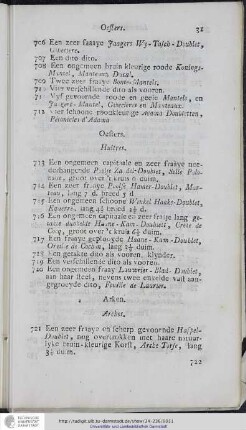 Oesters. 31
706 Een zeer fraaye Jaagers Wy-Tasch-Doublet,
707 Een dito dito.
708 Een ongemeen bruin kleurige roode Konings-
Mantel, Manteau Ducal.
709 Twee zeer fraaye Bonte-Mantels.
710 Vier verschillende dito als vooren.
711 Vyf gevoornde roode en geele Mantels, en
712 Vier schoone rooskleurige
Oesters.
Huitres.
713 Een ongemeen capitaale en zeer fraaije nee-
derhangende Zadel-Doublet, Selle Polo-
noise, groot over 't kruis 6 duim.
714 Een zeer fraaye Poolse Hamer-Doublet, Mar-
teau, lang 7 d. breed 7 d
715 Een ongemeen schoone Winkel Haak-Doublet,
Equerre, lang 4½ breed 1½ d.
716 Een ongemeen capitaale en zeer fraije lang ge-
Haane-Kam-Doublett, Crete de
Coq, groot over 't kruis 6½ duim.
717 Een fraaye geplooyde Haane-Kam-Doublet,
Oreille de Cochon, lang 3½ duim.
718 Een gerakte dito als vooren, kleynder.
719 Een verschillende dito als vooren.
720 Een ongemeen fraay Lauwrier-Blad-Doublet,
aan haar steel, nevens twee enkelde vast aan-
gegroeyde dito, Feuille de Laurier.
Arken.
Arches.
721 Een zeer fraaye en scherp gevoornde Haspel-
Doublet, nog overtrokken met haare natuur-
lyke bruin-kleurige Korst, Arche Torse, lang
3½ duim.
722